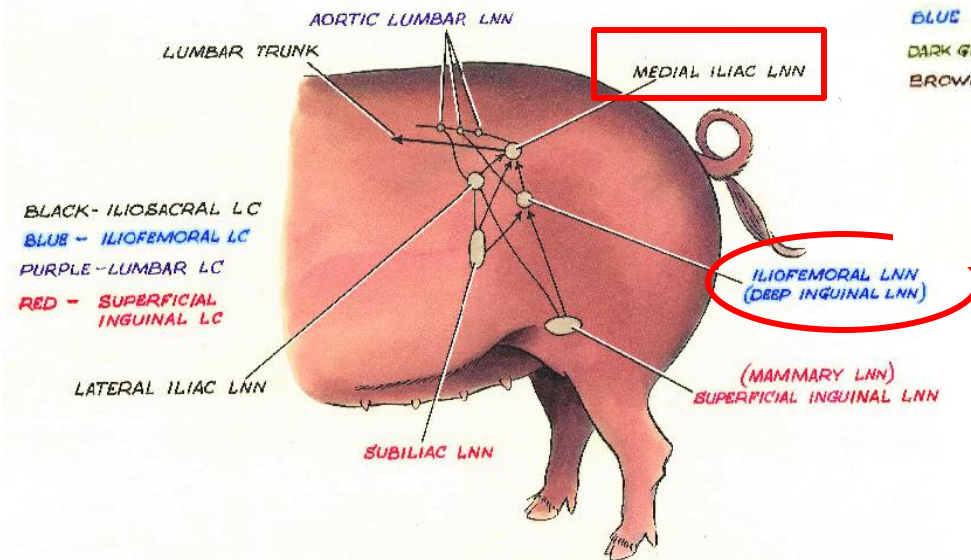 AORTIC LUMBAR LNN
LUMBAR TRUNK
MEDIAL ILIAC LNN
BLUE
DARK
BLACK-ILIOSACRAL LC
BLUE - ILIOFEMORAL LC
PURPLE-LUMBAR LC
RED - SUPERFICIAL
INGUINAL LC
ILIOFEMORAL LNN
(DEEP INGUINAL LNN)
LATERAL ILIAC LNN
(MAMMARY LNN)
SUPERFICIAL INGUINAL LNN
SUBILIAC LNN